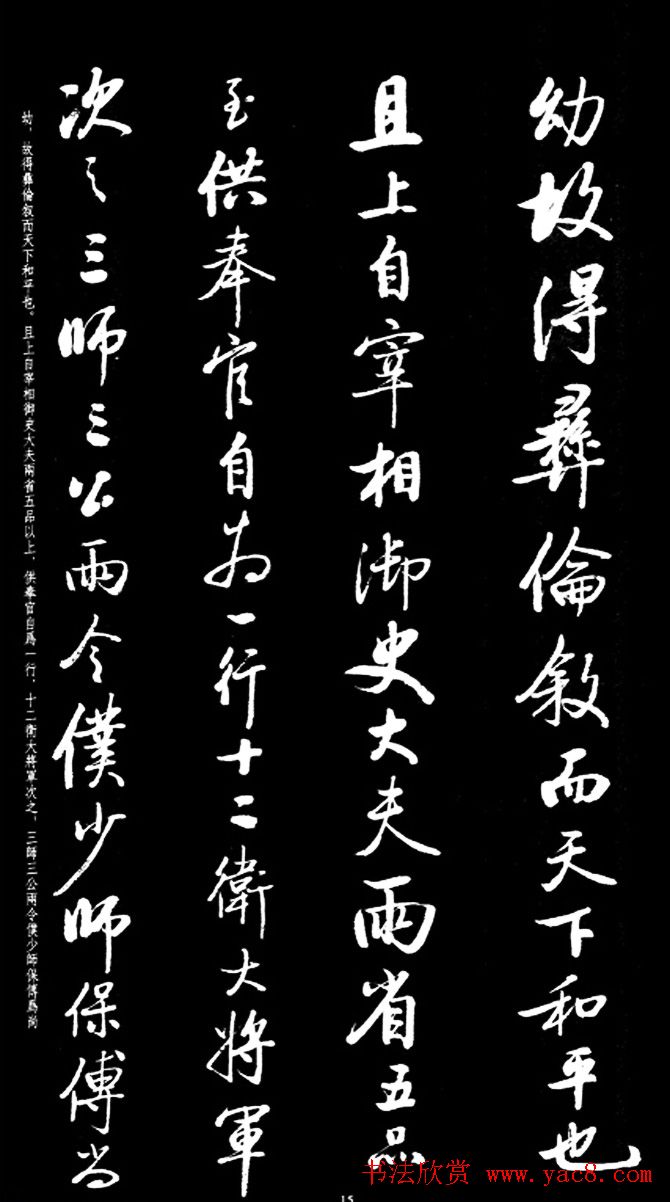 幼故得彝倫敘而天下和平也
且上自宰相御史大夫兩省五品
至供奉官自為一行十二衛大將軍
次之三師三公兩令僕少師保傅尚
幼，故得彝倫敘而天下和平也。且上自宰相御史大夫兩省五品以上，供奉官自爲一行，十二衛大將軍次之，三師三公兩令僕少師保傅爲尚
15
书法欣赏 www.yac8.com